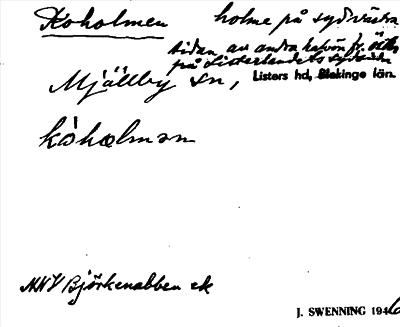 Koholmen holme på sydvästra
sidan av andra halvön fr. öster
på Listerlandets sydsida
Mjällby sn, Listers hd, Blekinge län.
kóholmən
NNV Björkenabben ek
J. SWENNING 1946